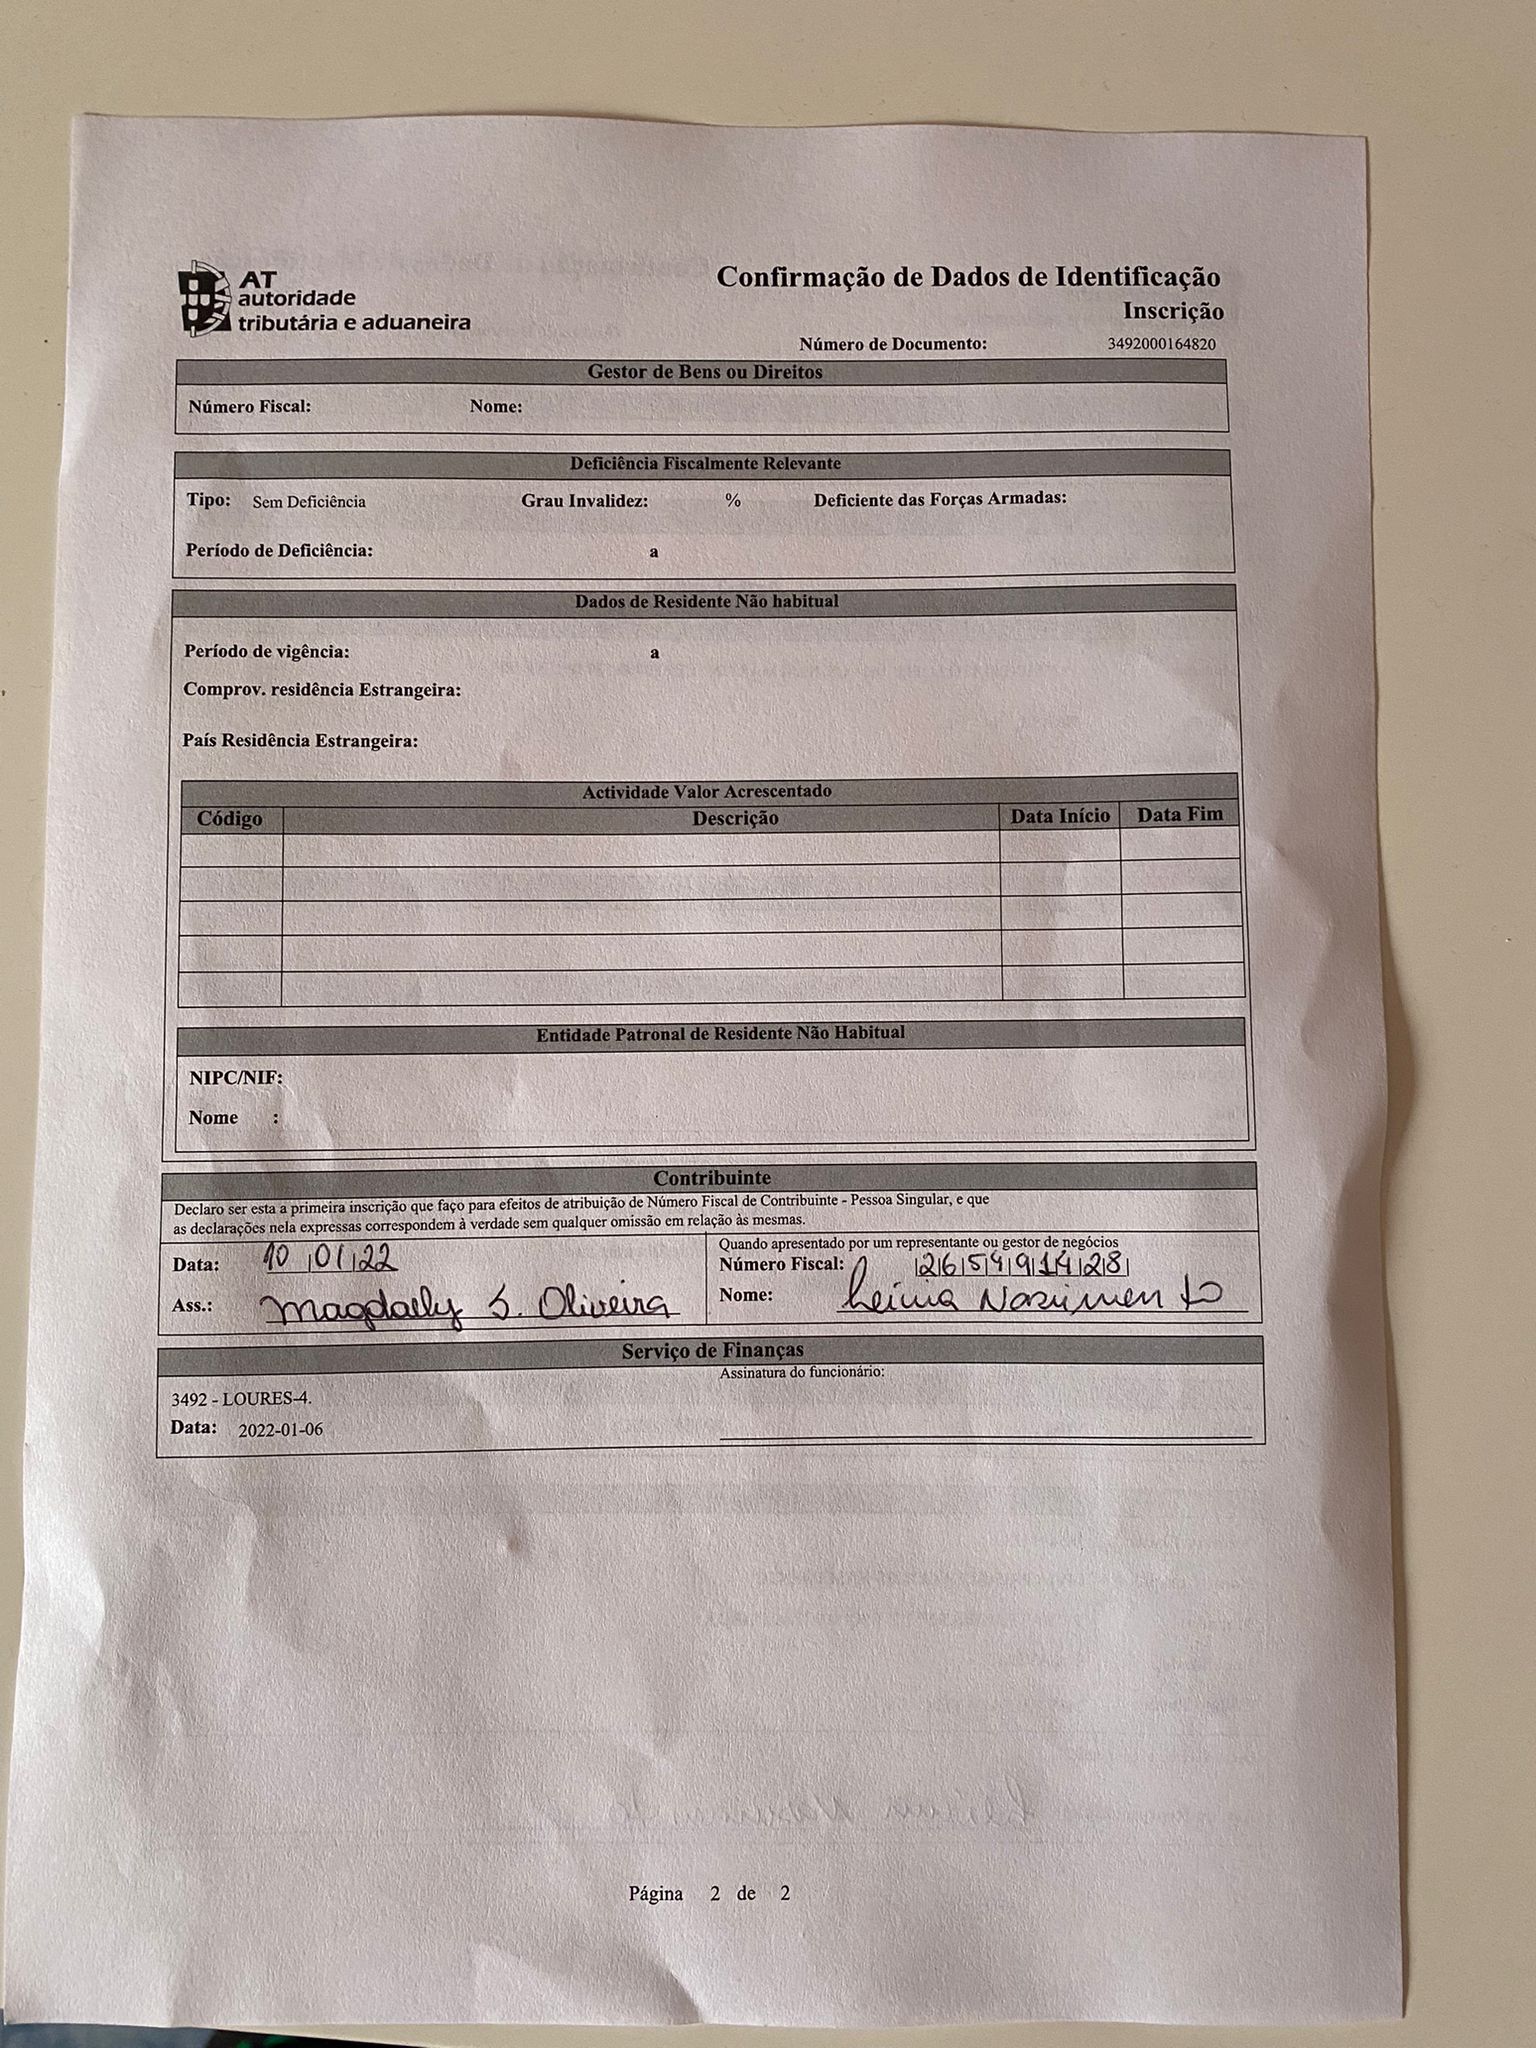 AT
autoridade
tributária e aduaneira
Confirmação de Dados de Identificação
Inscrição
Número de Documento: 3492000164820
Gestor de Bens ou Direitos
Número Fiscal: Nome:
Deficiência Fiscalmente Relevante
Tipo: Sem Deficiência Grau Invalidez: % Deficiente das Forças Armadas:
Período de Deficiência: a
Dados de Residente Não habitual
Período de vigência: a
Comprov. residência Estrangeira:
País Residência Estrangeira:
Actividade Valor Acrescentado
Código Descrição Data Início Data Fim
Entidade Patronal de Residente Não Habitual
NIPC/NIF:
Nome :
Contribuinte
Declaro ser esta a primeira inscrição que faço para efeitos de atribuição de Número Fiscal de Contribuinte - Pessoa Singular, e que
as declarações nela expressas correspondem à verdade sem qualquer omissão em relação às mesmas.
Data: 10 01 22
Ass.: Magdaely S. Oliveira
Quando apresentado por um representante ou gestor de negócios
Número Fiscal:
Nome:
Serviço de Finanças
3492 - LOURES-4.
Data: 2022-01-06
Assinatura do funcionário:
Página 2 de 2